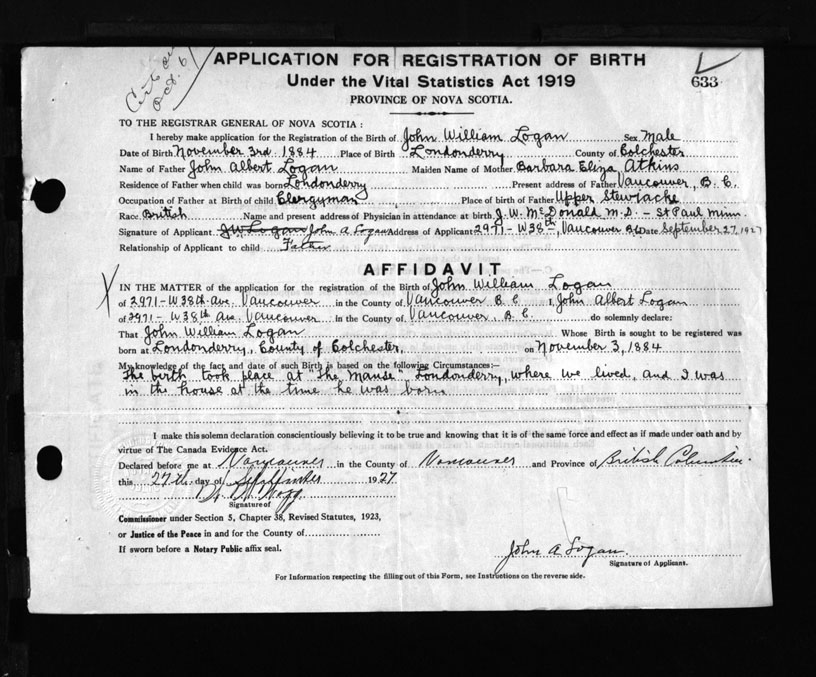 Oct. 6
APPLICATION FOR REGISTRATION OF BIRTH
633
Under the Vital Statistics Act 1919
PROVINCE OF NOVA SCOTIA.
TO THE REGISTRAR GENERAL OF NOVA SCOTIA :
I hereby make application for the Registration of the Birth of John William Logan Sex Male
Date of Birth November 3rd 1884 Place of Birth Londonderry County of Colchester
Name of Father John Albert Logan Maiden Name of Mother Barbara Eliza Atkins
Residence of Father when child was born Londonderry Present address of Father Vancouver, B. C.
Occupation of Father at Birth of child Clergyman Place of birth of Father Upper Stewiacke
Race British Name and present address of Physician in attendance at birth J. W. McDonald M.D. – St Paul Minn.
Signature of Applicant J W Logan John A Logan Address of Applicant 2971 - W 38th, Vancouver B.C. Date September 27, 1927
Relationship of Applicant to child Father
AFFIDAVIT
IN THE MATTER of the application for the registration of the Birth of John William Logan
of 2971 - W 38th Ave. Vancouver in the County of Vancouver B. C I, John Albert Logan
of 2971 - W 38th Ave Vancouver in the County of Vancouver, B. C. do solemnly declare:
That John William Logan Whose Birth is sought to be registered was
born at Londonderry, County of Colchester, on November 3, 1884
My knowledge of the fact and date of such Birth is based on the following Circumstances:—
The birth took place at "The Manse", Londonderry, where we lived, and I was
in the house at the time he was born
I make this solemn declaration conscientiously believing it to be true and knowing that it is of the same force and effect as if made under oath and by
virtue of The Canada Evidence Act.
Declared before me at Vancouver in the County of Vancouver and Province of British Columbia.
this 27th day of September 1927
Signature of
Commissioner under Section 5, Chapter 38, Revised Statutes, 1923,
or Justice of the Peace in and for the County of
If sworn before a Notary Public affix seal.
John A Logan.
Signature of Applicant.
For Information respecting the filling out of this Form, see Instructions on the reverse side.